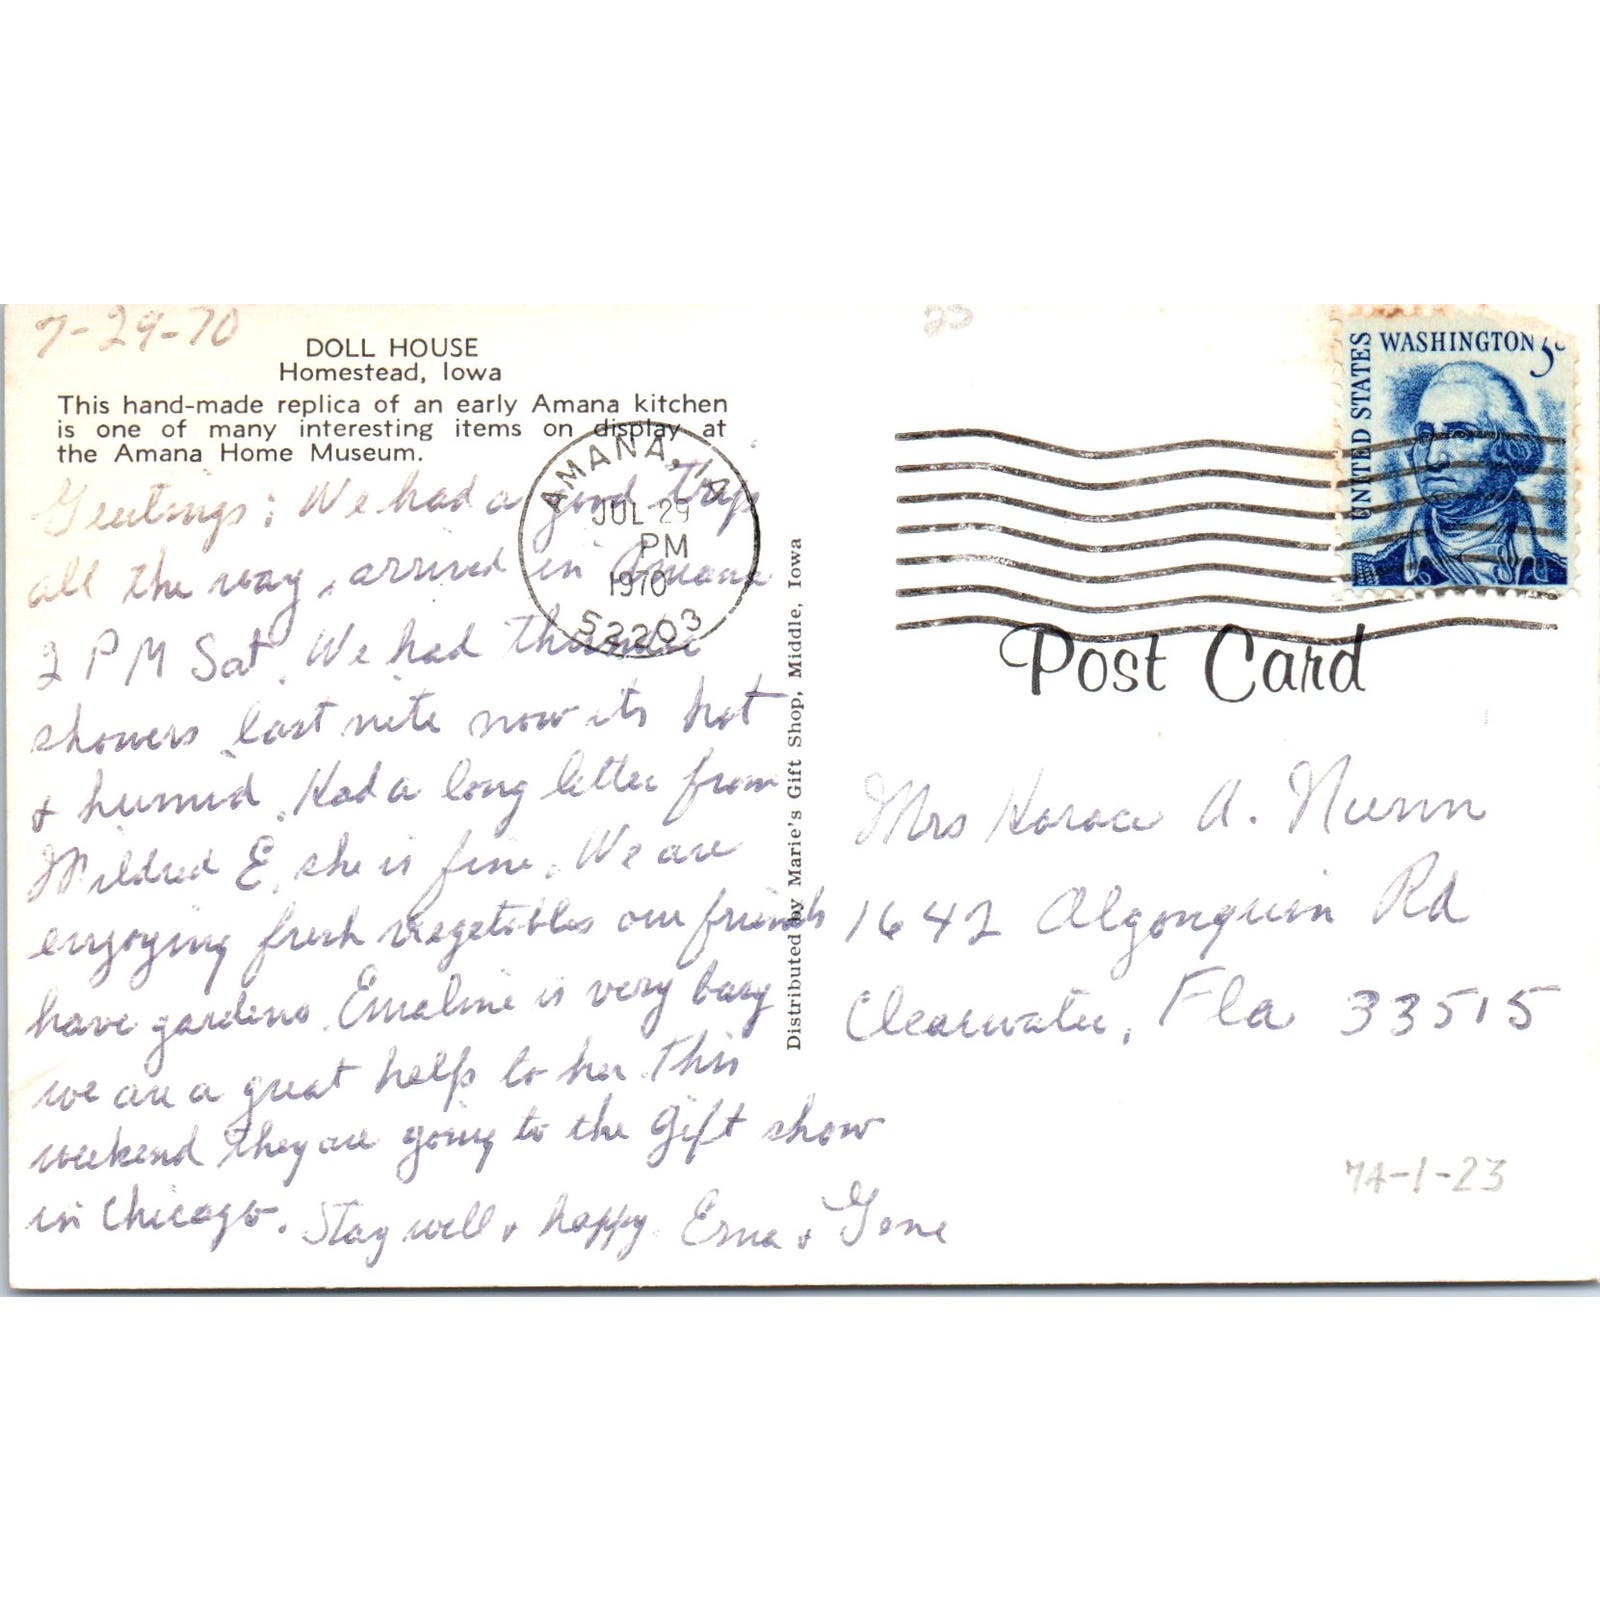 7-29-70
DOLL HOUSE
Homestead, Iowa
This hand-made replica of an early Amana kitchen
is one of many interesting items on display at
the Amana Home Museum.
Greetings: We had a good trip
all the way, arrived in Amana
2 PM Sat. We had thunder
showers last nite now its hot
& humid. Had a long letter from
Mildred E. she is fine. We are
enjoying fresh vegetables our friends
have gardens. Emaline is very busy
we are a great help to her. This
weekend they are going to the Gift show
in Chicago. Stay well & happy. Erna & Gene
AMANA, IA
JUL 29
PM
1970
52203
Distributed by Marie's Gift Shop, Middle, Iowa
25
UNITED STATES
WASHINGTON 5c
Post Card
Mrs Horace A. Nunn
1642 Algonquin Rd
Clearwater, Fla 33515
74-1-23